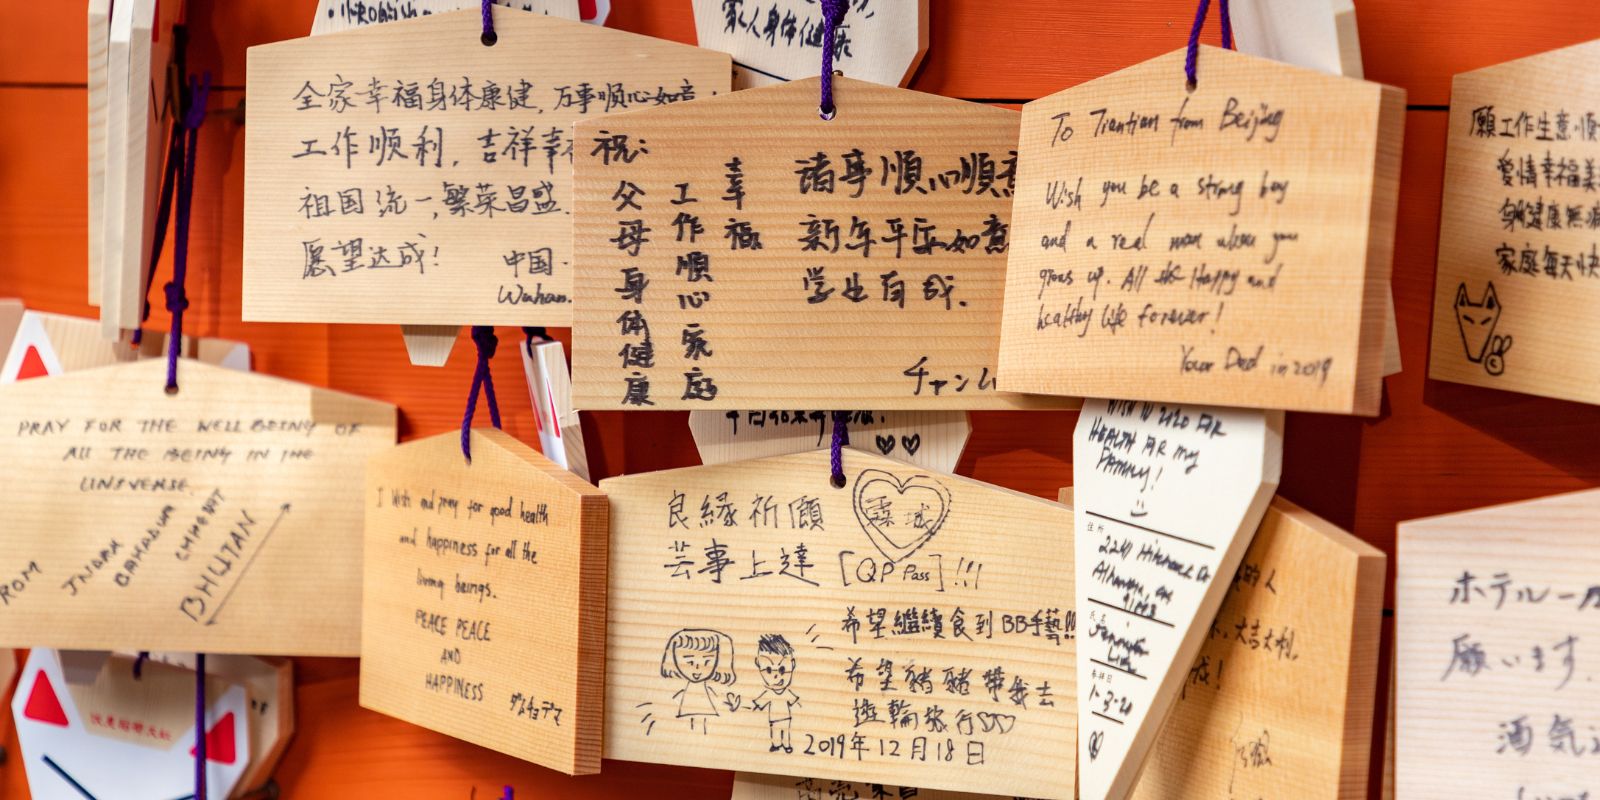 家人身体健康
全家幸福身体康健,万事顺心如意.
工作顺利,吉祥幸福
祖国统一,繁荣昌盛.
愿望达成!
中国.
Wuhan.
祝:
父母身体健康
工作順心家庭
幸福
諸事順心順意
新年平安如意
学生自成.
チャンム
To Tiantian from Beijing
Wish you be a strong boy
and a real man when you
grows up. All the Happy and
healthy life forever!
Your Dad in 2019
願工作生意順
愛情幸福美
身體健康無
家庭每天快
PRAY FOR THE WELL BEING OF
ALL THE BEING IN THE
UNIVERSE.
FROM
BAHADUR
CHHEMAT
BHUTAN
I wish and pray for good health
and happiness for all the
living beings.
PEACE PEACE
AND
HAPPINESS
良縁祈願
芸事上達 [QP Pass]!!!
希望繼續食到BB手藝!!
希望豬豬帶我去
遊輪旅行♡♡
2019年12月18日
WISH IN 2020 FOR
HEALTH FOR my
FAMILY!
住所
氏名
参拝日
1-3-20
的人
大吉大利.
成!
ホテル一
願います.
酒気